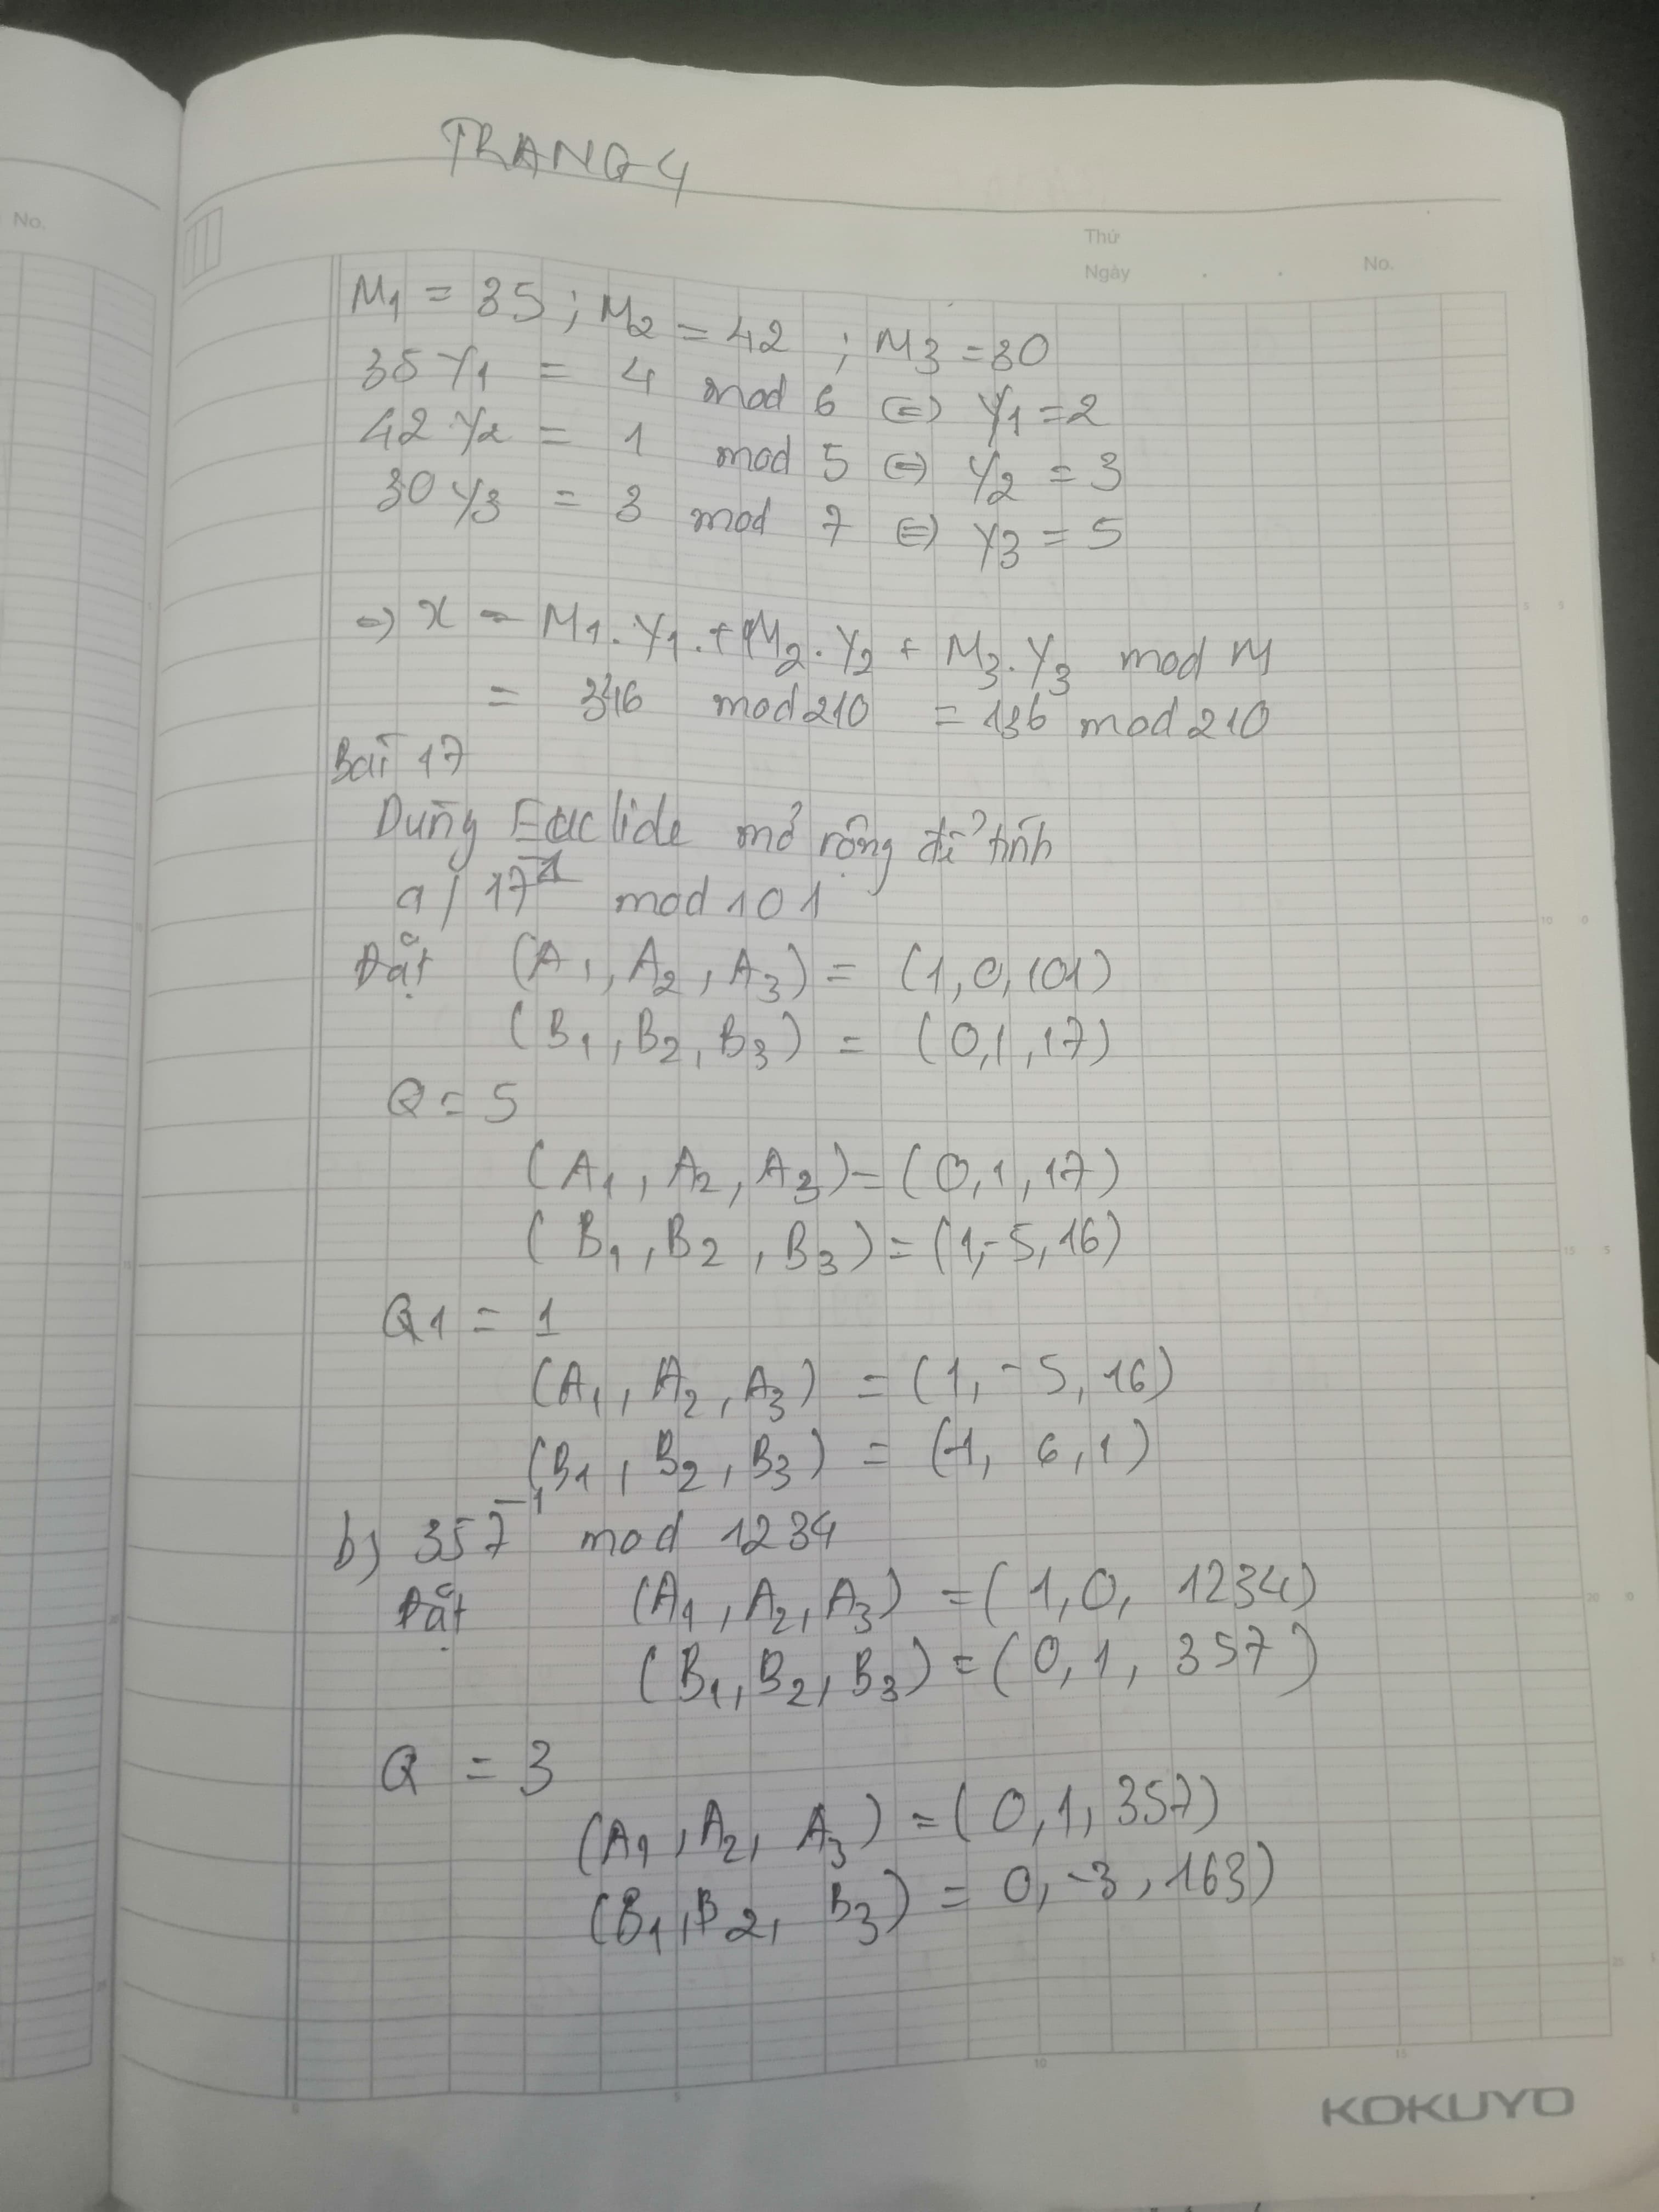 TRANG 4
No.
Thứ
Ngày . . No.
M1 = 35 ; M2 = 42 ; M3 = 30
35 Y1 = 4 mod 6 (=) Y1 = 2
42 Y2 = 1 mod 5 (=) Y2 = 3
30 Y3 = 3 mod 7 (=) Y3 = 5
=) x = M1.Y1.+ M2.Y2 + M3.Y3 mod M
= 346 mod 210 = 136 mod 210
Bài 17
Dùng Euclide mở rộng để tính
a/ 17⁻¹ mod 101
Đặt (A1, A2, A3) = (1, 0, 101)
(B1, B2, B3) = (0, 1, 17)
Q = 5
(A1, A2, A3) = (0, 1, 17)
(B1, B2, B3) = (1, -5, 16)
Q1 = 1
(A1, A2, A3) = (1, -5, 16)
(B1, B2, B3) = (-1, 6, 1)
b) 357⁻¹ mod 1234
Đặt (A1, A2, A3) = (1, 0, 1234)
(B1, B2, B3) = (0, 1, 357)
Q = 3
(A1, A2, A3) = (0, 1, 357)
(B1, B2, B3) = 0, -3, 163)
KOKUYO